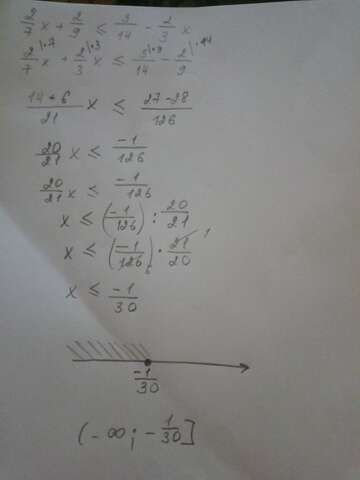 2/7 x + 2/9 ≤ 3/14 - 2/3 x
2/7 \·7 x + 2/3 \·3 x ≤ 3/14 \·9 - 2/9 \·14
14+6/21 x ≤ 27-28/126
20/21 x ≤ -1/126
20/21 x ≤ -1/126
x ≤ (-1/126) : 20/21
x ≤ (-1/126 6) · 21/20 1
x ≤ -1/30
-1/30
(-∞; -1/30]